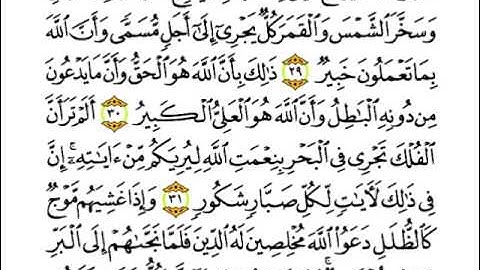 وَسَخَّرَ ٱلشَّمْسَ وَٱلْقَمَرَ كُلٌّ يَجْرِىٓ إِلَىٰٓ أَجَلٍ مُّسَمًّى وَأَنَّ ٱللَّهَ
بِمَا تَعْمَلُونَ خَبِيرٌ ٢٩ ذَٰلِكَ بِأَنَّ ٱللَّهَ هُوَ ٱلْحَقُّ وَأَنَّ مَا يَدْعُونَ
مِن دُونِهِ ٱلْبَٰطِلُ وَأَنَّ ٱللَّهَ هُوَ ٱلْعَلِىُّ ٱلْكَبِيرُ ٣٠ أَلَمْ تَرَ أَنَّ
ٱلْفُلْكَ تَجْرِى فِى ٱلْبَحْرِ بِنِعْمَتِ ٱللَّهِ لِيُرِيَكُم مِّنْ ءَايَٰتِهِۦٓ إِنَّ
فِى ذَٰلِكَ لَءَايَٰتٍ لِّكُلِّ صَبَّارٍ شَكُورٍ ٣١ وَإِذَا غَشِيَهُم مَّوْجٌ
كَٱلظُّلَلِ دَعَوُا۟ ٱللَّهَ مُخْلِصِينَ لَهُ ٱلدِّينَ فَلَمَّا نَجَّىٰهُمْ إِلَى ٱلْبَرِّ